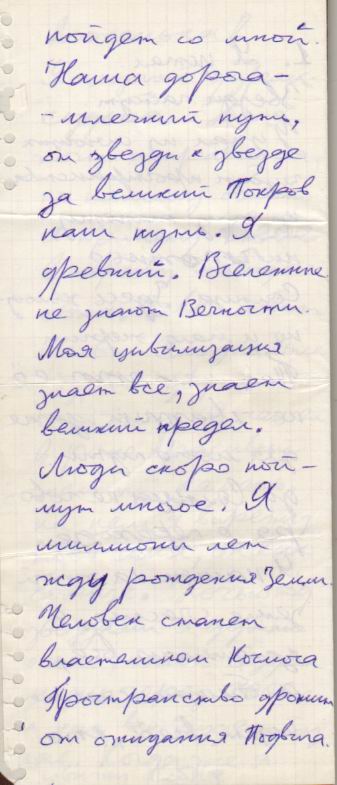 пойдет со мной.
Наша дорога -
- млечный путь,
от звезды к звезде
за великий Покров
наш путь. Я
древний. Вселенные
не знают Вечности.
Моя цивилизация
знает все, знает
великий предел.
Люди скоро пой-
мут многое. Я
миллионы лет
жду рождения Земли.
Человек станет
властелином Космоса
Пространство дрожит
от ожидания Подвига.